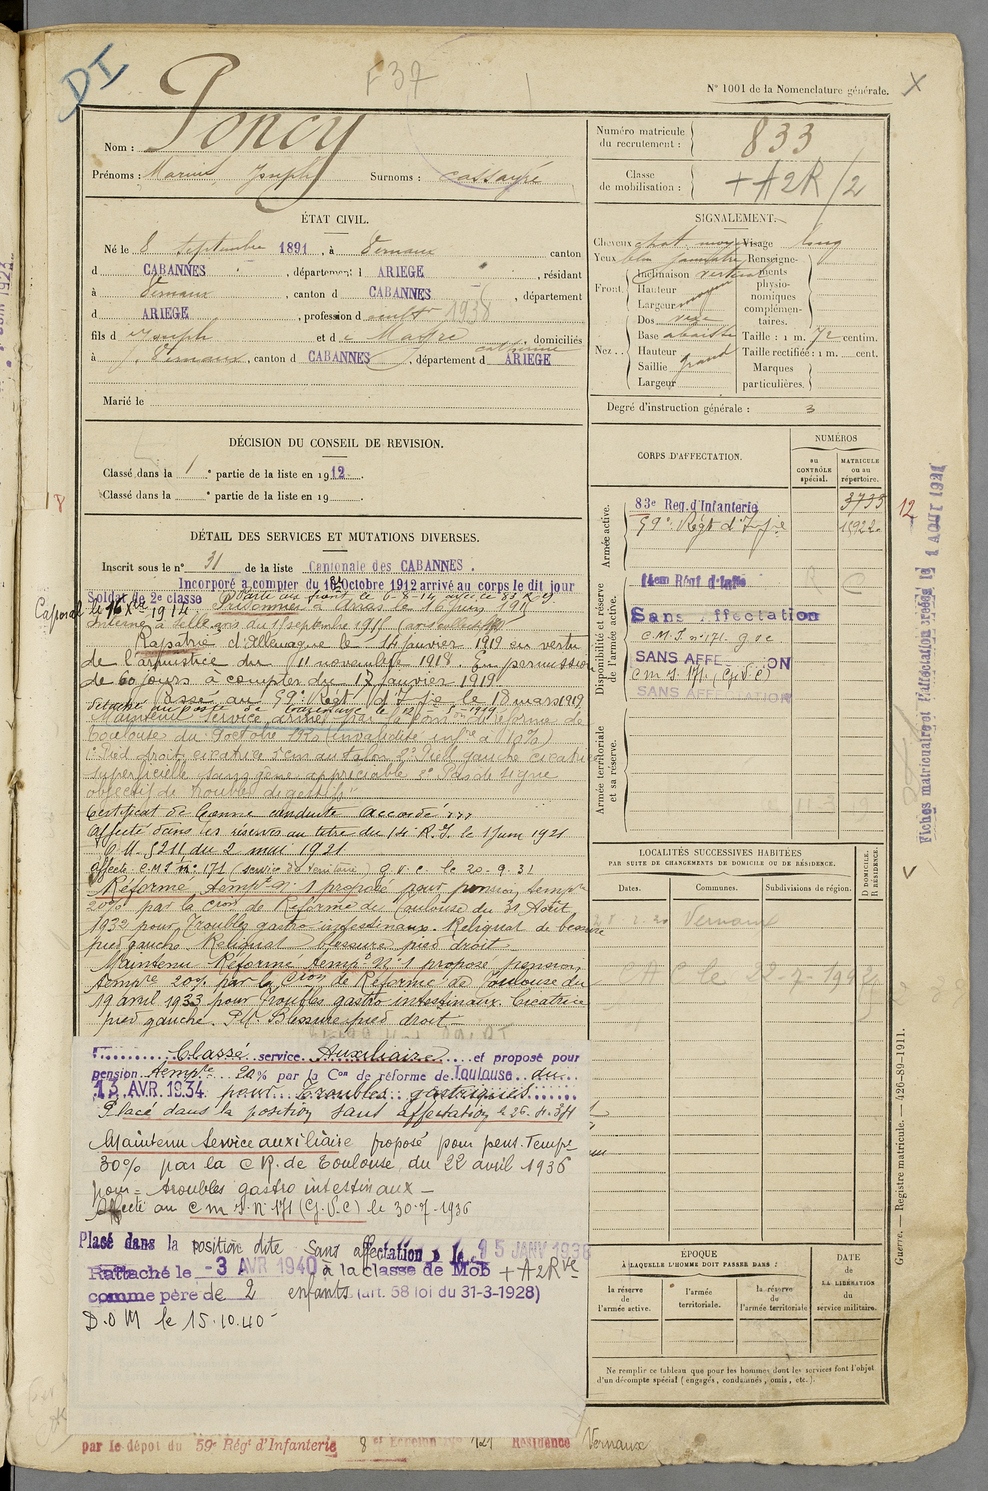 DI
F 37
N° 1001 de la Nomenclature générale.
X
Nom : Poncy
Prénoms : Marius Joseph Surnoms : Cassayré
Numéro matricule du recrutement : 833
Classe de mobilisation : + A2R/2
ÉTAT CIVIL.
Né le 8 Septembre 1891, à Vernaux canton
d CABANNES, département d ARIEGE, résidant
à Vernaux, canton d CABANNES, département
d ARIEGE, profession d 1938
fils d Joseph et de domiciliés
à Vernaux, canton d CABANNES, département d ARIEGE
Marié le
SIGNALEMENT.
Cheveux chat. moy Visage long
Yeux bleu Renseigne-
Front. Inclinaison vertical ments
Hauteur physio-
Largeur moyen nomiques
complémen-
taires.
Nez. Dos
Base Taille : 1 m. 72 centim.
Hauteur Taille rectifiée : 1 m. cent.
Saillie grand Marques
Largeur particulières.
Degré d'instruction générale : 3
DÉCISION DU CONSEIL DE REVISION.
Classé dans la 1e partie de la liste en 1912.
Classé dans la e partie de la liste en 19
CORPS D'AFFECTATION.
NUMÉROS
au CONTRÔLE spécial.
MATRICULE ou au répertoire.
Armée active.
83e Reg. d'Infanterie 3735
59e Régt d'Infie 1922
12
18
Disponibilité et réserve de l'armée active.
14em Régt d'Infie
Sans affectation
C.M.I. n° 171. g v c
SANS AFFECTATION
C m I. 171. (G.V.C)
SANS AFFECTATION
Armée territoriale et sa réserve.
Fiches matriculaire et d'affectation créées le 1 AOUT 1921
DÉTAIL DES SERVICES ET MUTATIONS DIVERSES.
Inscrit sous le n° 31 de la liste Cantonale des CABANNES.
Incorporé a compter du Octobre 1912 arrivé au corps le dit jour
Soldat de 2e classe Parti au front le 6-8-14 avec le 83
Caporal le 16 Xbre 1914. Prisonnier à Arras le 16 juin 1915
Interné à Celle
Rapatrié d'Allemagne le 14 Janvier 1919 en vertu
de l'armistice du 11 novembre 1918. En permission
de 60 jours à compter du 17 janvier 1919
Passé au 59e Régt d'Infie le 18 mars 1919
Détaché au poste de
Maintenu service armé par la Comon de réforme de
Toulouse du octobre 1920 (invalidité infre à 10%)
1° Pied droit cicatrice 5cm au talon 2° Pied gauche cicatrice
superficielle sans gêne appréciable 3° Pas de signe
objectif de troubles digestifs"
Certificat de bonne conduite Accordé
Affecté dans les réserves au titre du 14e R.I. le 1 juin 1921
C.M. § 211 du 2 mai 1921
affecté C.M.I. n° 171 (service du territoire) G.V.C. le 20-9-31
Réformé tempre n° 1 proposé pour pension tempre
20% par la Cron de Réforme de Toulouse du 31 Août
1932 pour Troubles gastro intestinaux. Reliquat de blessure
pied gauche. Reliquat blessure pied droit.
Maintenu Réformé tempre N° 1 proposé pension
tempre 20% par la Cron de Réforme de Toulouse du
19 avril 1933 pour Troubles gastro intestinaux. Cicatrice
pied gauche. Blessure pied droit.
Classé service Auxiliaire et proposé pour
pension tempre 20% par la Con de réforme de Toulouse du
13 AVR. 1934 pour Troubles gastriques
Placé dans la position sans affectation le 26.4.34
Maintenu Service auxiliaire proposé pour pens. Tempre
30% par la C R. de Toulouse du 22 avril 1936
pour = troubles gastro intestinaux -
Affecté au C m I. n° 171 (G.V.C) le 30-7-1936
Placé dans la position dite Sans affectation le 15 JANV 1938
Rattaché le -3 AVR 1940 à la classe de Mob + A2Rve
comme père de 2 enfants (art. 58 loi du 31-3-1928)
D.O M le 15.10.40
LOCALITÉS SUCCESSIVES HABITÉES
PAR SUITE DE CHANGEMENTS DE DOMICILE OU DE RÉSIDENCE.
Dates. Communes. Subdivisions de région. D. DOMICILE. R. RÉSIDENCE.
Vernaux
C le 22-7-
ÉPOQUE
À LAQUELLE L'HOMME DOIT PASSER DANS :
la réserve de l'armée active.
l'armée territoriale.
la réserve de l'armée territoriale
DATE de LA LIBÉRATION du service militaire.
Ne remplir ce tableau que pour les hommes dont les services font l'objet
d'un décompte spécial (engagés, condamnés, omis, etc.).
Guerre. — Registre matricule. — 426-89-1911.
par le dépôt du 59e Rég' d'Infanterie 8 Résidence Vernaux